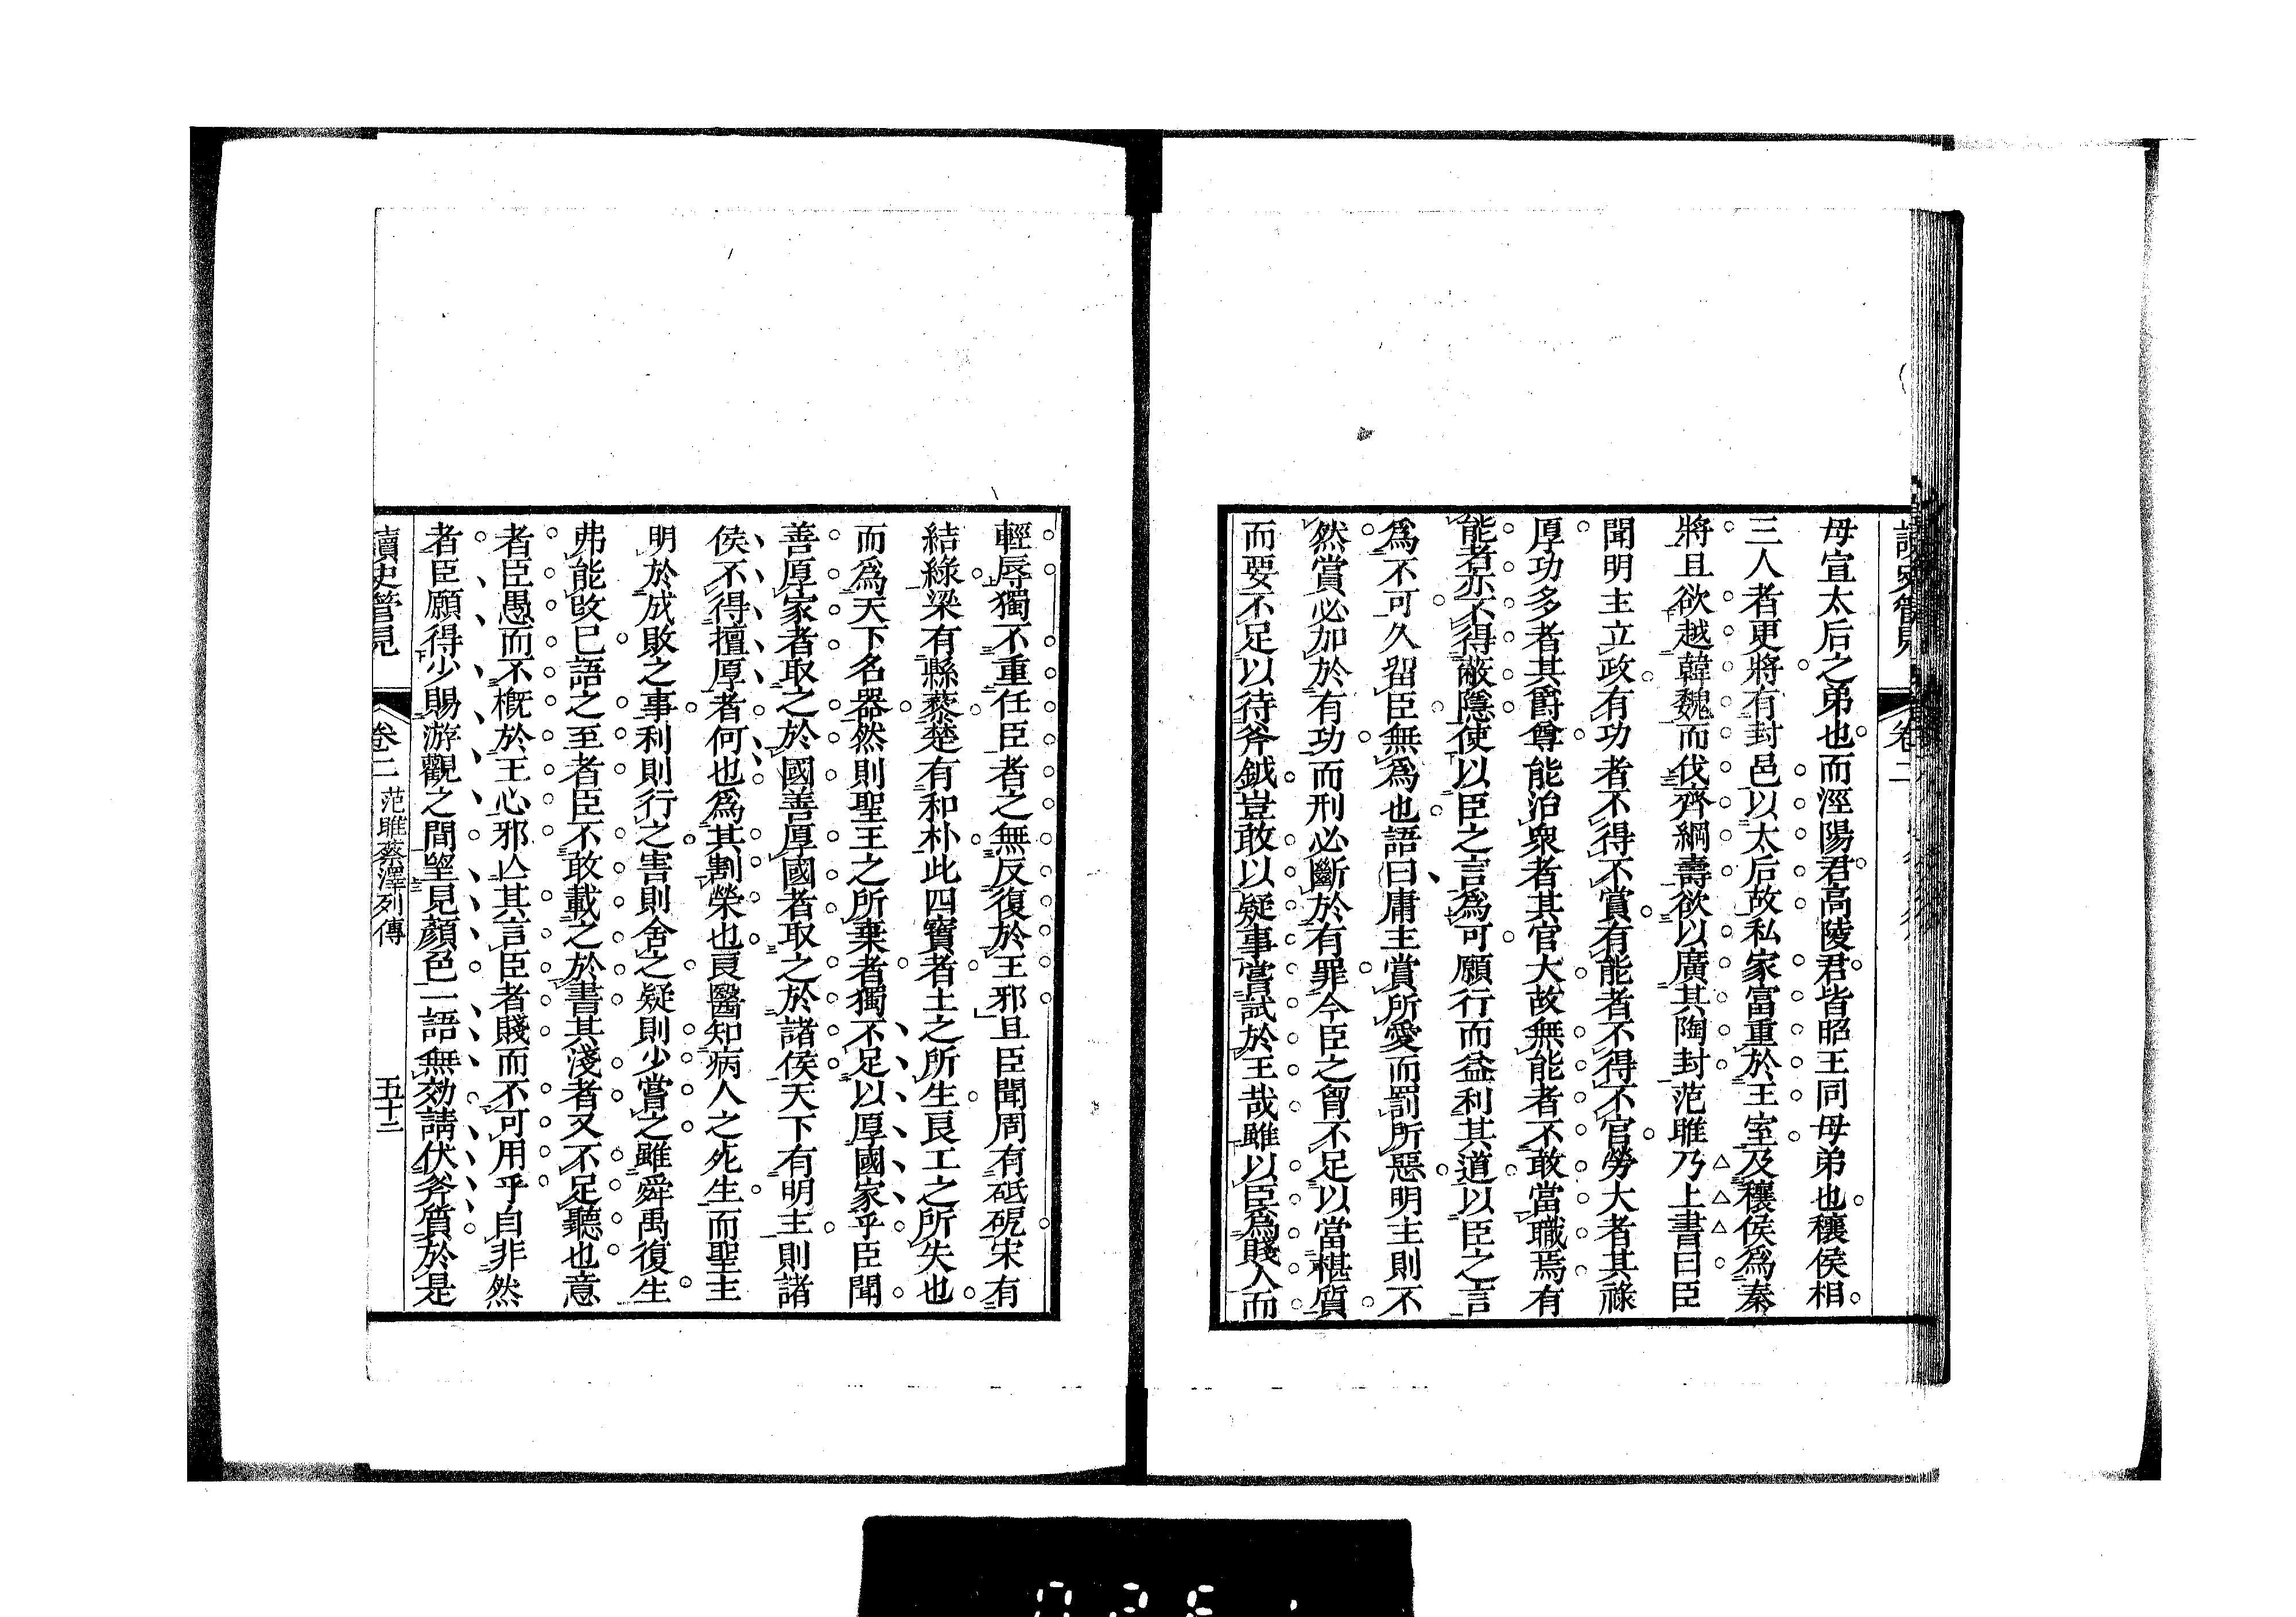 母宣太后之弟也而涇陽君高陵君皆昭王同母弟也穰侯相
三人者更將有封邑以太后故私家富重於王室及穰侯爲秦
將且欲越韓魏而伐齊綱壽欲以廣其陶封范雎乃上書曰臣
聞明主立政有功者不得不賞有能者不得不官勞大者其祿
厚功多者其爵尊能治衆者其官大故無能者不敢當職焉有
能者亦不得蔽隱使以臣之言爲可願行而益利其道以臣之言
爲不可久留臣無爲也語曰庸主賞所愛而罰所惡明主則不
然賞必加於有功而刑必斷於有罪今臣之胷不足以當椹質
而要不足以待斧鉞豈敢以疑事嘗試於王哉雖以臣爲賤人而
輕辱獨不重任臣者之無反復於王邪且臣聞周有砥砨宋有
結綠梁有縣藜楚有和朴此四寶者土之所生良工之所失也
而爲天下名器然則聖王之所棄者獨不足以厚國家乎臣聞
善厚家者取之於國善厚國者取之於諸侯天下有明主則諸
侯不得擅厚者何也爲其割榮也良醫知病人之死生而聖主
明於成敗之事利則行之害則舍之疑則少嘗之雖舜禹復生
弗能改已語之至者臣不敢載之於書其淺者又不足聽也意
者臣愚而不概於王心邪亾其言臣者賤而不可用乎自非然
者臣願得少賜游觀之間望見顏色一語無効請伏斧質於是
讀史管見 卷二 范雎蔡澤列傳 五十二